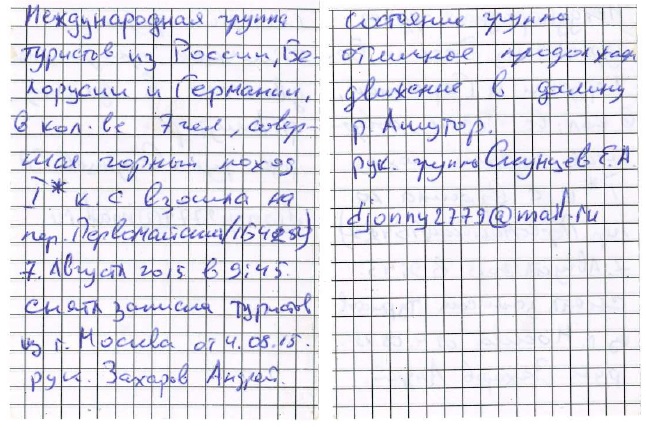 Международная группа
туристов из России, Бе-
лорусии и Германии,
в кол. ве 7 чел, совер-
шая горный поход
I* к. с взошла на
пер. Первомайский
7. Августа 2015 в 9:45.
снята записка туристов
из г. Москва от 4.08.15.
рук. Захаров Андрей.
состояние группы
отличное продолжаем
движение в долину
р
рук. группы Скунцев Е.А.
djonny2779@mail.ru